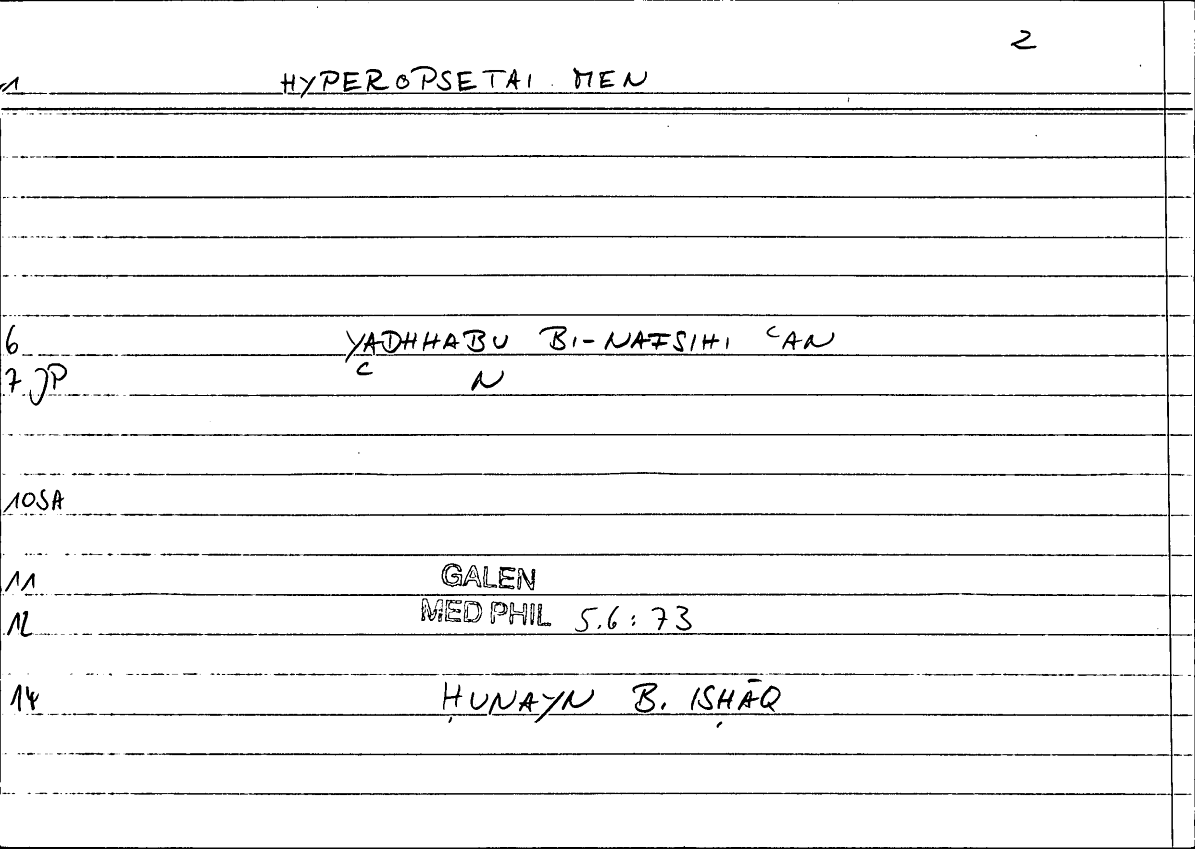 2
1 HYPEROPSETAI MEN
6 YADHHABU BI-NAFSIHI ᶜAN
7 JP C N
10SA
11 GALEN
12 MED PHIL 5.6:73
14 ḤUNAYN B. ISḤĀQ